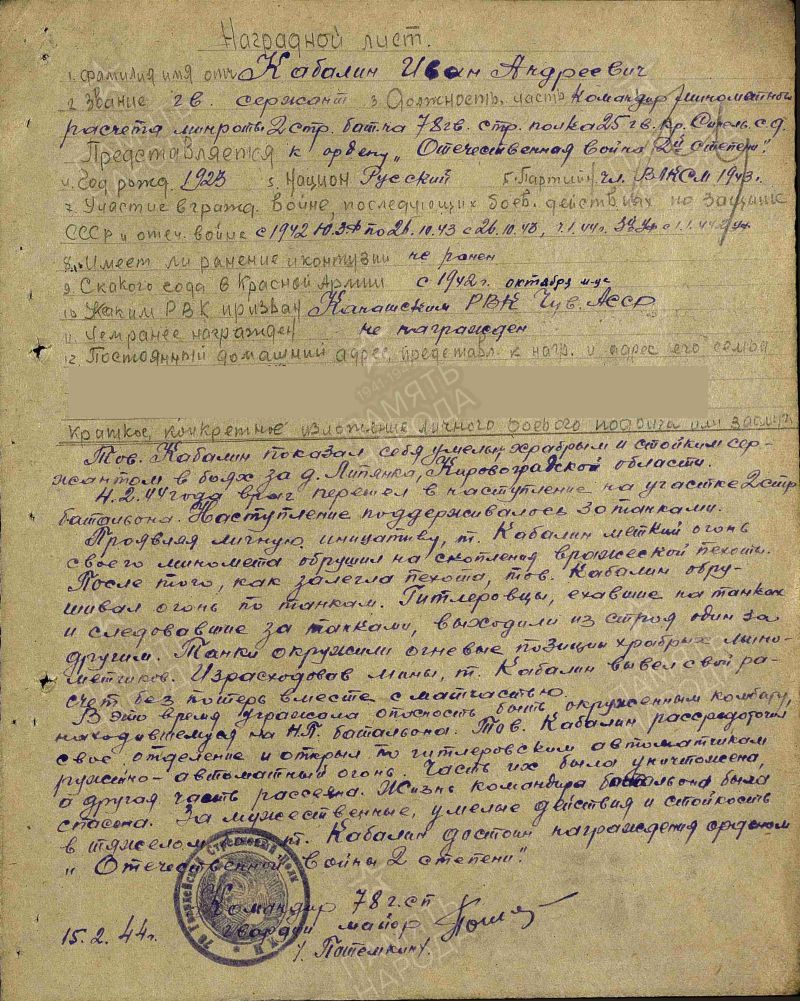 Наградной лист.
1. Фамилия имя отч Кабалин Иван Андреевич
2. Звание гв. сержант 3. Должность, часть Командир минометного
расчета минроты 2 стр. бат-на 78 гв. стр. полка 25 гв. Кр. Синель. с.д.
Представляется к ордену „Отечественная война 2й степени".
4. Год рожд. 1923 5. Национ Русский 6. Партийн. чл. ВЛКСМ 1943 г.
7. Участие в гражд. войне, последующих боев. действиях по защите
СССР и отеч. войне с 1942 Ю.З.Ф по 26.10.43 с 26.10.43,
8. Имеет ли ранение и контузии не ранен
9. С какого года в Красной Армии с 1942 г. октября м-ца
10. Каким РВК призван Канашским РВК Чув. АССР
11. Чем ранее награжден не награжден
12. Постоянный домашний адрес, представл. к нагр. и адрес его семьи
Краткое, конкретное изложение личного боевого подвига или заслуг
Тов. Кабалин показал себя умелым храбрым и стойким сер-
жантом в боях за д. Липянка, Кировоградской области.
4.2.44 года враг перешел в наступление на участке 2 стр
батальона. Наступление поддерживалось 30 танками.
Проявляя личную инициативу, т. Кабалин меткий огонь
своего миномета обрушил на скопления вражеской пехоты.
После того, как залегла пехота, тов. Кабалин обру-
шивал огонь по танкам. Гитлеровцы, ехавшие на танках
и следовавшие за танками, выходили из строя один за
другим. Танки окружили огневые позиции храбрых мино-
метчиков. Израсходовав мины, т. Кабалин вывел свой ра-
счет без потерь вместе с матчастью.
В это время угрожала опасность быть окруженным комбату,
находившемуся на НП батальона. Тов. Кабалин рассредоточил
свое отделение и открыл по гитлеровским автоматчикам
ружейно-автоматный огонь. Часть их была уничтожена,
а другая часть рассеяна. Жизнь командира батальона была
спасена. За мужественные, умелые действия и стойкость
в тяжелом т. Кабалин достоин награждения орденом
„Отечественной войны 2 степени".
Командир 78 г.сп
гвардии майор
15.2.44 г. /Потемкин/.
78 Гвардейский Стрелковый Полк
ПАМЯТЬ
НАРОДА